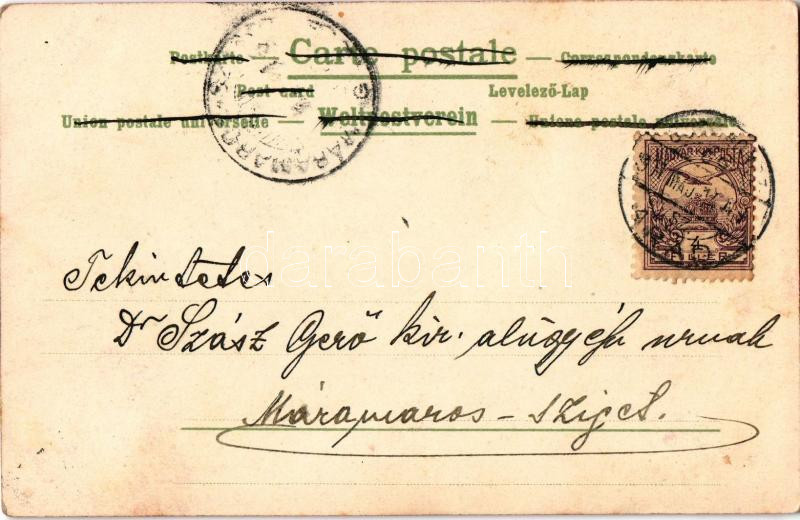 Postkarte — Carte postale — Correspondenzkarte
Post card Levelező-Lap
Union postale universelle — Weltpostverein — Unione postale universale
MÁRAMAROS
MAGYAR KIR. POSTA
MÁJ.
4
FILLÉR
darabanth
Tekintetes
Dr Szász Gerő kir. alügyész urnak
Máramaros-Sziget.